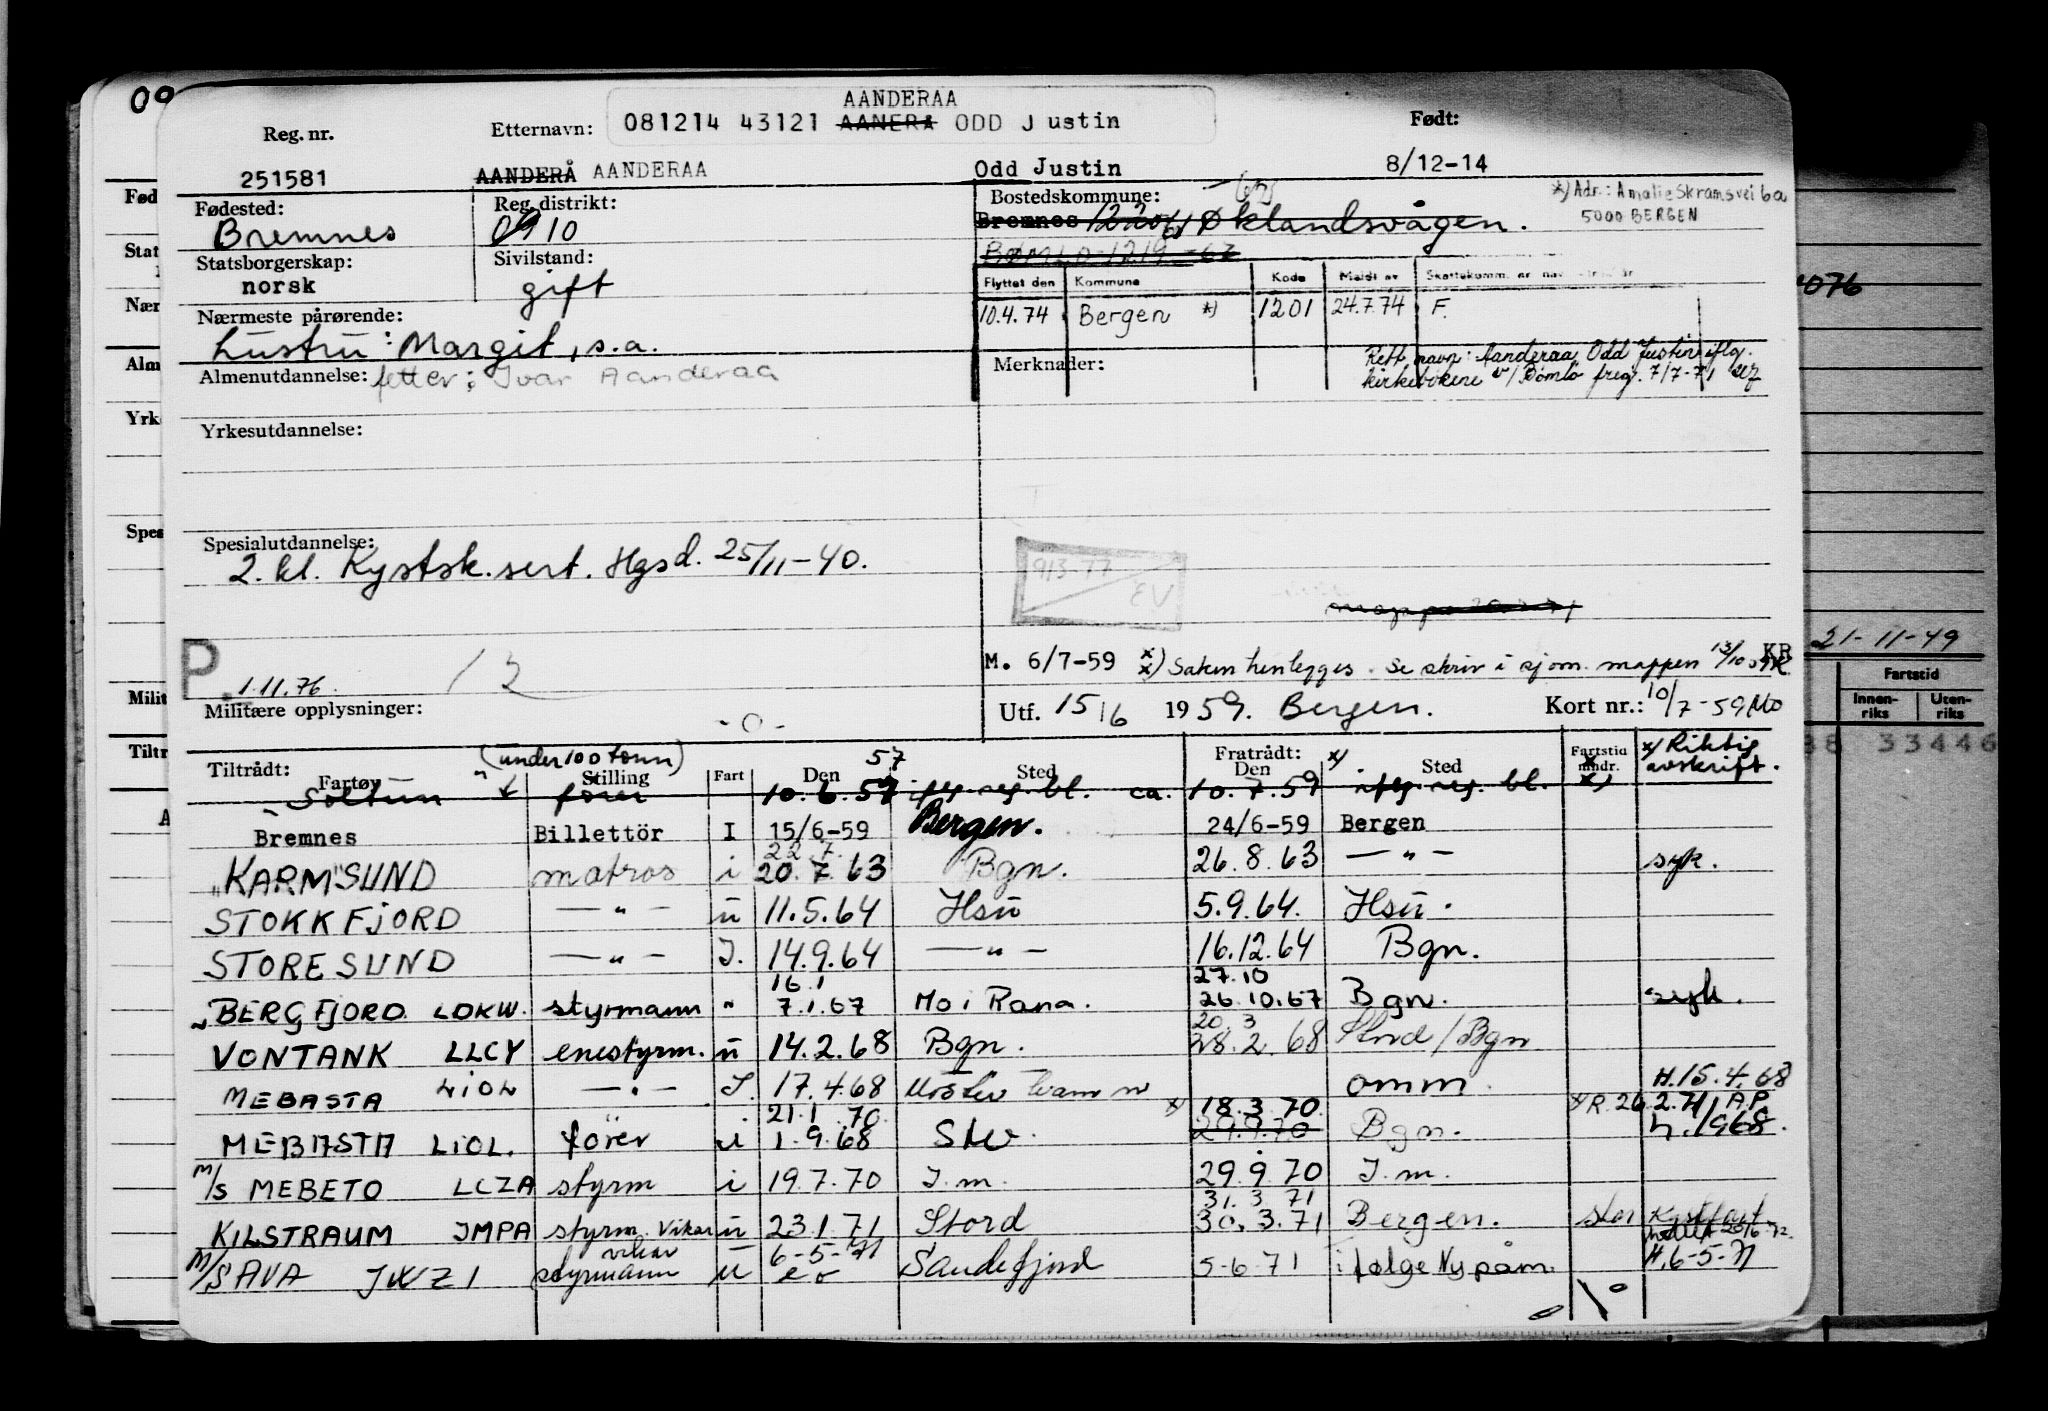 AANDERAA
Reg. nr. Etternavn: 081214 43121 AANERA ODD Justin Født:
251581 AANDERÅ AANDERAA Odd Justin 8/12-14
Fødested: Reg. distrikt: Bostedskommune: *) Adr.: Amalie Skramsvei 6a
Bremnes 0910 Bremnes Øklandsvågen. 5000 BERGEN
Statsborgerskap: Sivilstand:
norsk gift
Flyttet den Kommune Kode Meldt av
10.4.74 Bergen *) 1201 24.7.74 F.
Nærmeste pårørende:
hustru: Margit, s.a.
Merknader: Rett navn: Aanderaa Odd Justin iflg.
Almenutdannelse: fetter: Ivar Aanderaa
kirkebøkene v/ Bømlo preg. 7/7-71
Yrkesutdannelse:
Spesialutdannelse:
2. kl. Kystsk.sert. Hgsd. 25/11-40.
913-77
EV
P. 1.11.76.
M. 6/7-59 Saken henlegges. Se skriv i sjøm. mappen 13/10 KR
Militære opplysninger: -o-
Utf. 15/6 1959. Bergen. Kort nr.: 10/7-59 Mo
Tiltrådt: Fartøy (under 100 tonn) Stilling Fart Den Sted Fratrådt: Den Sted Fartstid mndr. *) Riktig avskrift.
57
Soltun fører 10.6.59 iflg. reg. bl. ca. 10.7.59 iflg. reg. bl.
Bremnes Billettör I 15/6-59 Bergen. 24/6-59 Bergen
22 7.
"KARMSUND" matros i 20.7.63 Bgn. 26.8.63 — " — syk.
STOKKFJORD — " — u 11.5.64 Hsu 5.9.64. Hsu.
STORESUND — " — I. 14.9.64 — " — 16.12.64 Bgn.
16.1 27.10
BERGFJORD LDKW. styrmann " 7.1.67 Mo i Rana. 26.10.67 Bgn. syk.
20. 3
VONTANK LLCY enestyrm. u 14.2.68 Bgn. 28.2.68 Stord/Bgn
MEBASTA LIOL — " — I. 17.4.68 omm. H.15.4.68
21.1.70 *) 18.3.70. *) R. 26.2.71 A.P.
MEBASTA LIOL. fører u 1.9.68 29.9.70 Bgn. h.1968.
M/S MEBETO LCZA styrm i 19.7.70 I.m. 29.9.70 I.m.
31. 3 71
KILSTRAUM JMPA styrm. vikar u 23.1.71 Stord 30.3.71 Bergen.
vikar 6-5-71
M/S AVA JWZI styrmann u Sandefjord 5-6-71 i følge Ny påm. H.6-5-71
21-11-49
Fartstid
Innen-riks Uten-riks
33446